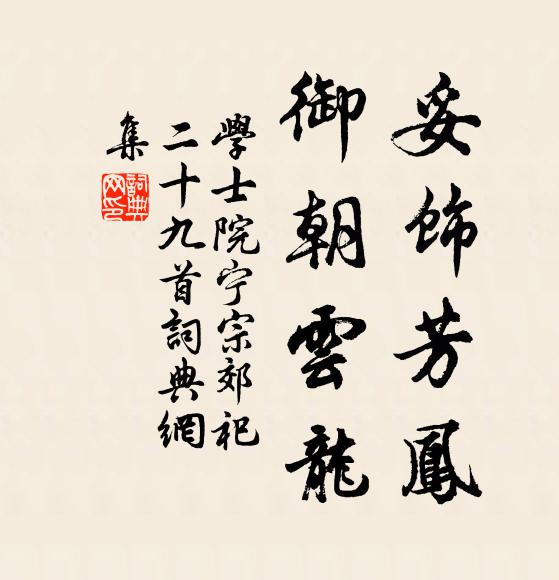 妥飾芳鳳
御朝雲龍
學士院宁宗郊祀
二十九首詞典網
集
詞典
网印